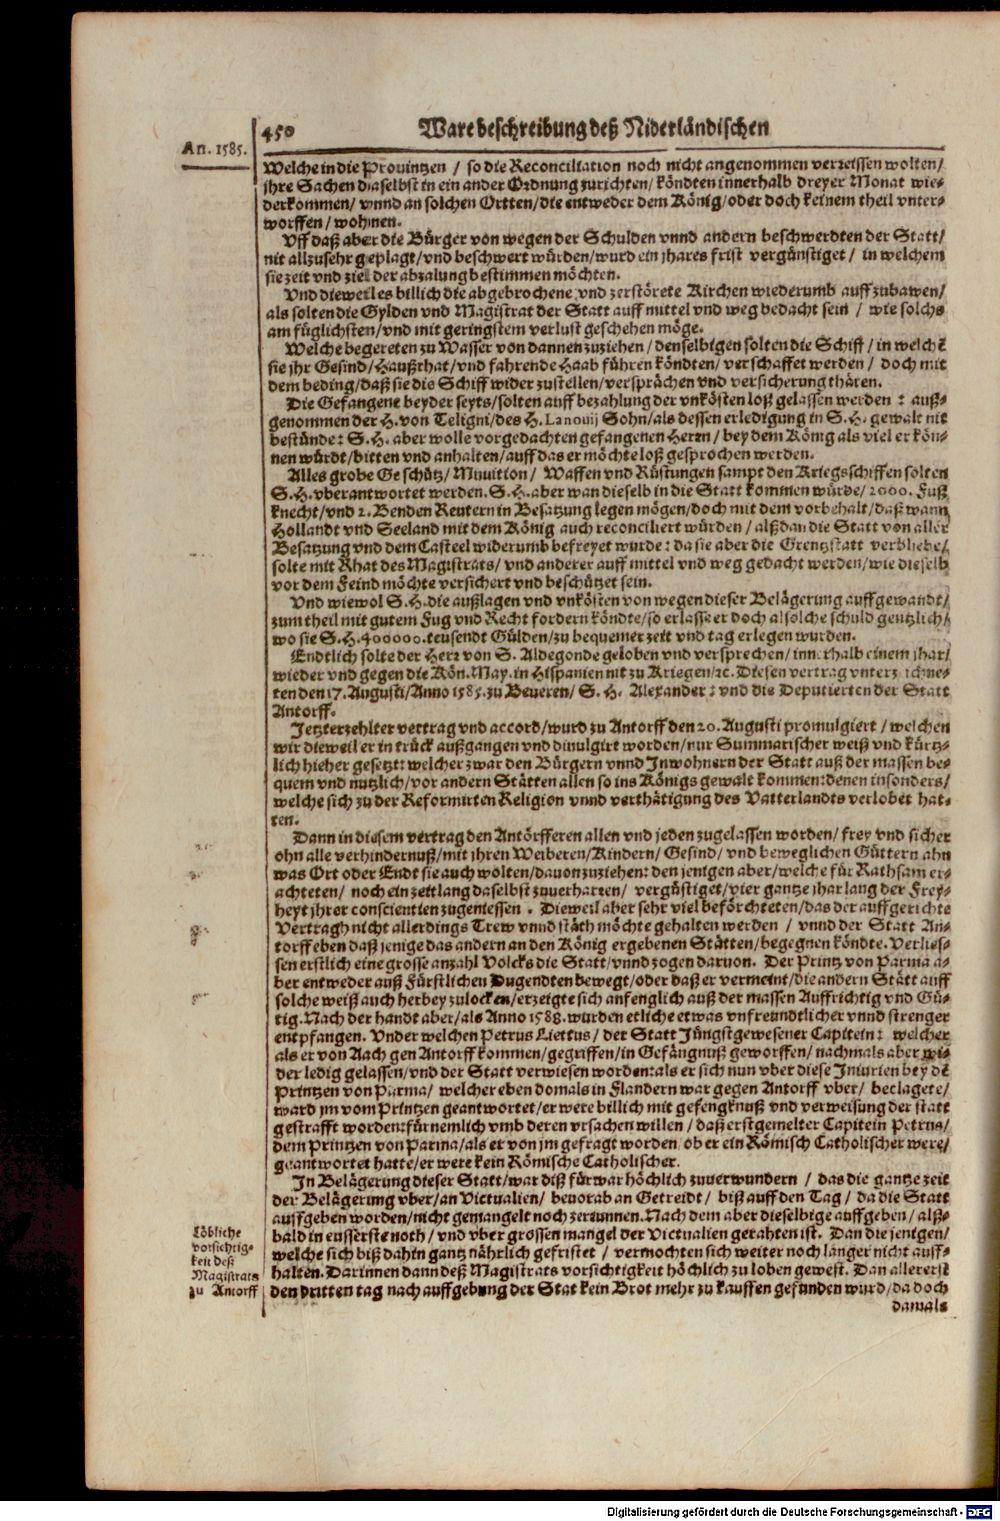 450 Ware beschreibung deß Niderländischen
An. 1585.
Welche in die Prouintzen / so die Reconciliation noch nicht angenommen verreissen wolten/
jhre Sachen daselbst in ein ander Ordnung zurichten/ köndten innerhalb dreyer Monat wie-
derkommen/ vnnd an solchen Ortten/die entweder dem König/oder doch keinem theil vnter-
worffen/ wohnen.
Vff daß aber die Bürger von wegen der Schulden vnnd andern beschwerdten der Statt/
nit allzusehr geplagt/vnd beschwert würden/wurd ein jhares frist vergünstiget / in welchem
sie zeit vnd ziel der abzalung bestimmen möchten.
Vnd dieweil es billich die abgebrochene vnd zerstörete Kirchen wiederumb auffzubawen/
als solten die Gylden vnd Magistrat der Statt auff mittel vnd weg bedacht sein / wie solchs
am füglichsten/vnd mit geringstem verlust geschehen möge.
Welche begereten zu Wasser von dannen zuziehen/ denselbigen solten die Schiff/ in welchē
sie jhr Gesind/Haußrhat/vnd fahrende Haab führen köndten/ verschaffet werden / doch mit
dem beding/daß sie die Schiff wider zustellen/versprächen vnd versicherung thäten.
Die Gefangene beyder seyts/solten auff bezahlung der vnkösten loß gelassen werden : auß-
genommen der H. von Teligni/des H. Lanouij Sohn/als dessen erledigung in S. H. gewalt nit
bestünde: S. H. aber wolle vorgedachten gefangenen Herrn / bey dem König als viel er kön-
nen würdt/bitten vnd anhalten/auff das er möchte loß gesprochen werden.
Alles grobe Geschütz/ Munition/ Waffen vnd Rüstungen sampt den Kriegsschiffen solten
S. H. vberantwortet werden. S. H. aber wan dieselb in die Statt kommen würde/ 2000. Fuß
knecht/vnd 2. Benden Reutern in Besatzung legen mögen/doch mit dem vorbehalt/daß wann
Hollandt vnd Seeland mit dem König auch reconciliert würden / alßdan die Statt von aller
Besatzung vnd dem Casteel widerumb befreyet wurde: da sie aber die Grentzstatt verbliebe/
solte mit Rhat des Magistrats/ vnd anderer auff mittel vnd weg gedacht werden/wie dieselb
vor dem Feind möchte versichert vnd beschützet sein.
Vnd wiewol S. H. die außlagen vnd vnkösten von wegen dieser Belägerung auffgewandt/
zum theil mit gutem Fug vnd Recht fordern köndte/so erlasse er doch alsolche schuld gentzlich/
wo sie S. H. 400000. teusendt Gülden/zu bequemer zeit vnd tag erlegen wurden.
Endtlich solte der Herr von S. Aldegonde geloben vnd versprechen/ innerhalb einem jhar/
wieder vnd gegen die Kön. May. in Hispanien nit zu Kriegen/ꝛc. Diesen vertrag vnterzeichne-
ten den 17. Augusti/Anno 1585. zu Beueren/ S. H. Alexander: vnd die Deputierten der Statt
Antorff.
Jetzterzehlter vertrag vnd accord/wurd zu Antorff den 20. Augusti promulgiert / welchen
wir dieweil er in trück außgangen vnd diuulgirt worden/nur Summarischer weiß vnd kürtz-
lich hieher gesetzt: welcher zwar den Bürgern vnnd Inwohnern der Statt auß der massen be-
quem vnd nutzlich/vor andern Stätten allen so ins Königs gewalt kommen: denen insonders/
welche sich zu der Reformirten Religion vnnd verthätigung des Vatterlandts verlobet hat-
ten.
Dann in diesem vertrag den Antörfferen allen vnd jeden zugelassen worden/ frey vnd sicher
ohn alle verhindernuß/mit jhren Weiberen/Kindern/ Gesind/ vnd beweglichen Güttern ahn
was Ort oder Endt sie auch wolten/dauon zuziehen: den jenigen aber/welche für Rathsam er-
achteten/ noch ein zeitlang daselbst zuuerharren/ vergüstiget/vier gantze jhar lang der Frey-
heyt jhrer conscientien zugeniessen . Dieweil aber sehr viel beförchteten/das der auffgerichte
Vertragh nicht allerdings Trew vnnd stäth möchte gehalten werden / vnnd der Statt An-
torff eben daß jenige das andern an den König ergebenen Stätten/begegnen köndte. Verlies-
sen erstlich eine grosse anzahl Volcks die Statt/vnnd zogen daruon. Der Printz von Parma a-
ber entweder auß Fürstlichen Dugendten bewegt/oder daß er vermeint/die andern Stätt auff
solche weiß auch herbey zulocken/erzeigte sich anfenglich auß der massen Auffrichtig vnd Gü-
tig. Nach der handt aber/als Anno 1588. wurden etliche etwas vnfreundtlicher vnnd strenger
entpfangen. Vnder welchen Petrus Liettus/ der Statt Jüngstgewesener Capitein: welcher
als er von Aach gen Antorff kommen/gegriffen/in Gefängnuß geworffen/ nachmals aber wi-
der ledig gelassen/vnd der Statt verwiesen worden: als er sich nun vber diese Iniurien bey dē
Printzen von Parma/ welcher eben domals in Flandern war gegen Antorff vber/ beclagete/
ward jm vom Printzen geantwortet/er were billich mit gefengknuß vnd verweisung der statt
gestrafft worden: fürnemlich vmb deren vrsachen willen / daß erstgemelter Capitein Petrus/
dem Printzen von Parma/als er von jm gefragt worden/ ob er ein Römisch Catholischer were/
geantwortet hatte/er were kein Römische Catholischer.
In Belägerung dieser Statt/war diß fürwar höchlich zuuerwundern / das die gantze zeit
der Belägerung vber/an Victualien/ beuorab an Getreidt/ biß auff den Tag/ da die Statt
auffgeben worden/nicht gemangelt noch zerrunnen. Nach dem aber dieselbige auffgeben/ alß-
bald in eusserste noth/ vnd vber grossen mangel der Victualien gerahten ist. Dan die jenigen/
welche sich biß dahin gantz nährlich gefristet / vermochten sich weiter noch länger nicht auff-
halten. Darinnen dann deß Magistrats vorsichtigkeit höchlich zu loben gewest. Dan allererst
den dritten tag nach auffgebung der Stat kein Brot mehr zu kauffen gefunden wurd/da doch
damals
Löbliche
vorsichtig-
keit deß
Magistrats
zu Antorff
Digitalisierung gefördert durch die Deutsche Forschungsgemeinschaft - DFG